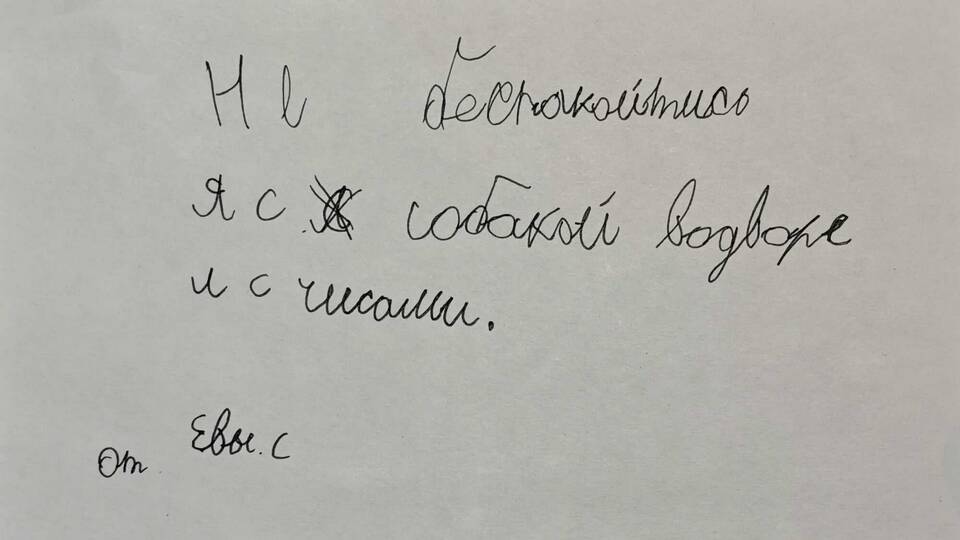 Не беспакойтись
Я с собакой водворе
и с чисами.
От Евы. С